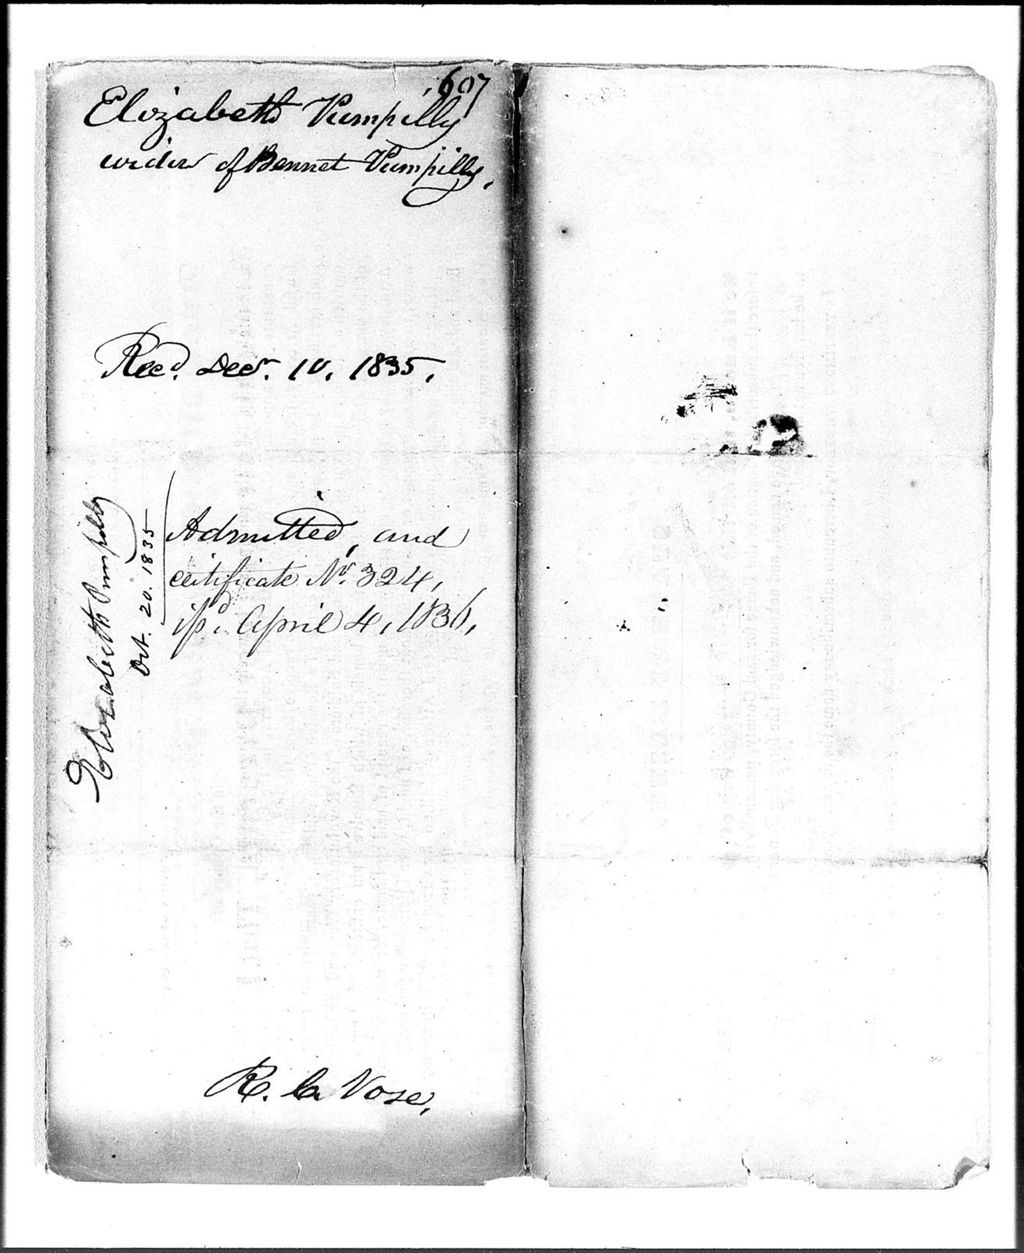 607
Elizabeth Pumpilly
widow of Bennet Pumpilly.
Recd. Decr. 10, 1835.
Elizabeth Pumpilly
Oct. 20. 1835
Admitted, and
certificate No. 324,
isd. April 4, 1836,
R. la Vose,